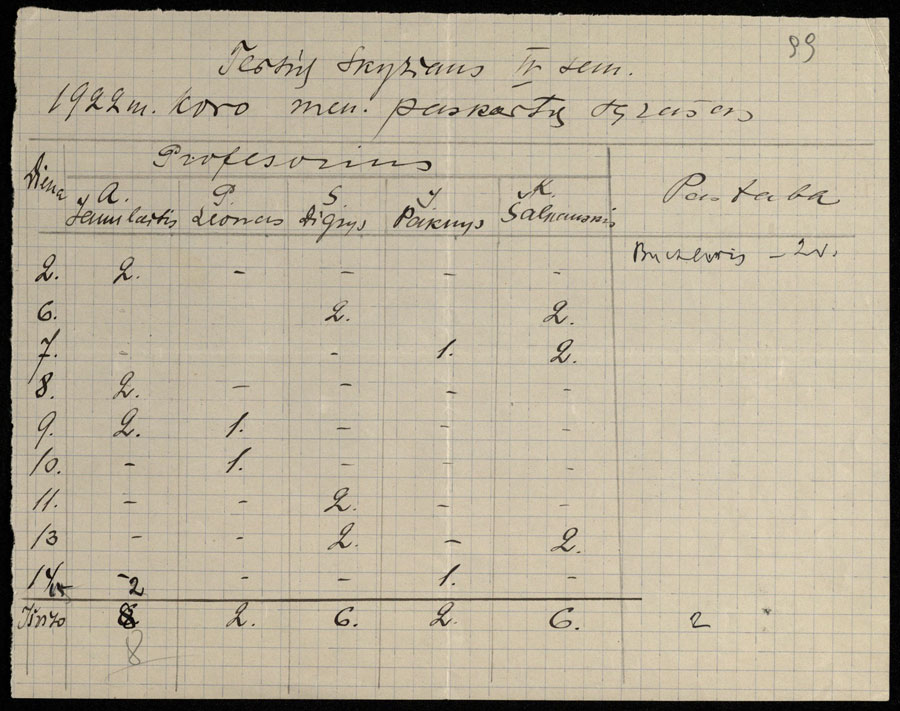 99
Teisių Skyriaus IV sem.
1922 m. Kovo mėn. paskaitų
Profesorius
Diena
A. Janulaitis P. Leonas S. Digrys J. Paknys K. Šalkauskis
Pastaba
2. 2. - - - -
6. 2. 2.
7. - - 1. 2.
8. 2. - - - -
9. 2. 1. - - -
10. - 1. - - -
11. - - 2. - -
13 - - 2. - 2.
14/15 -2 - - 1. -
Išviso 8 2. 6. 2. 6. 2
8